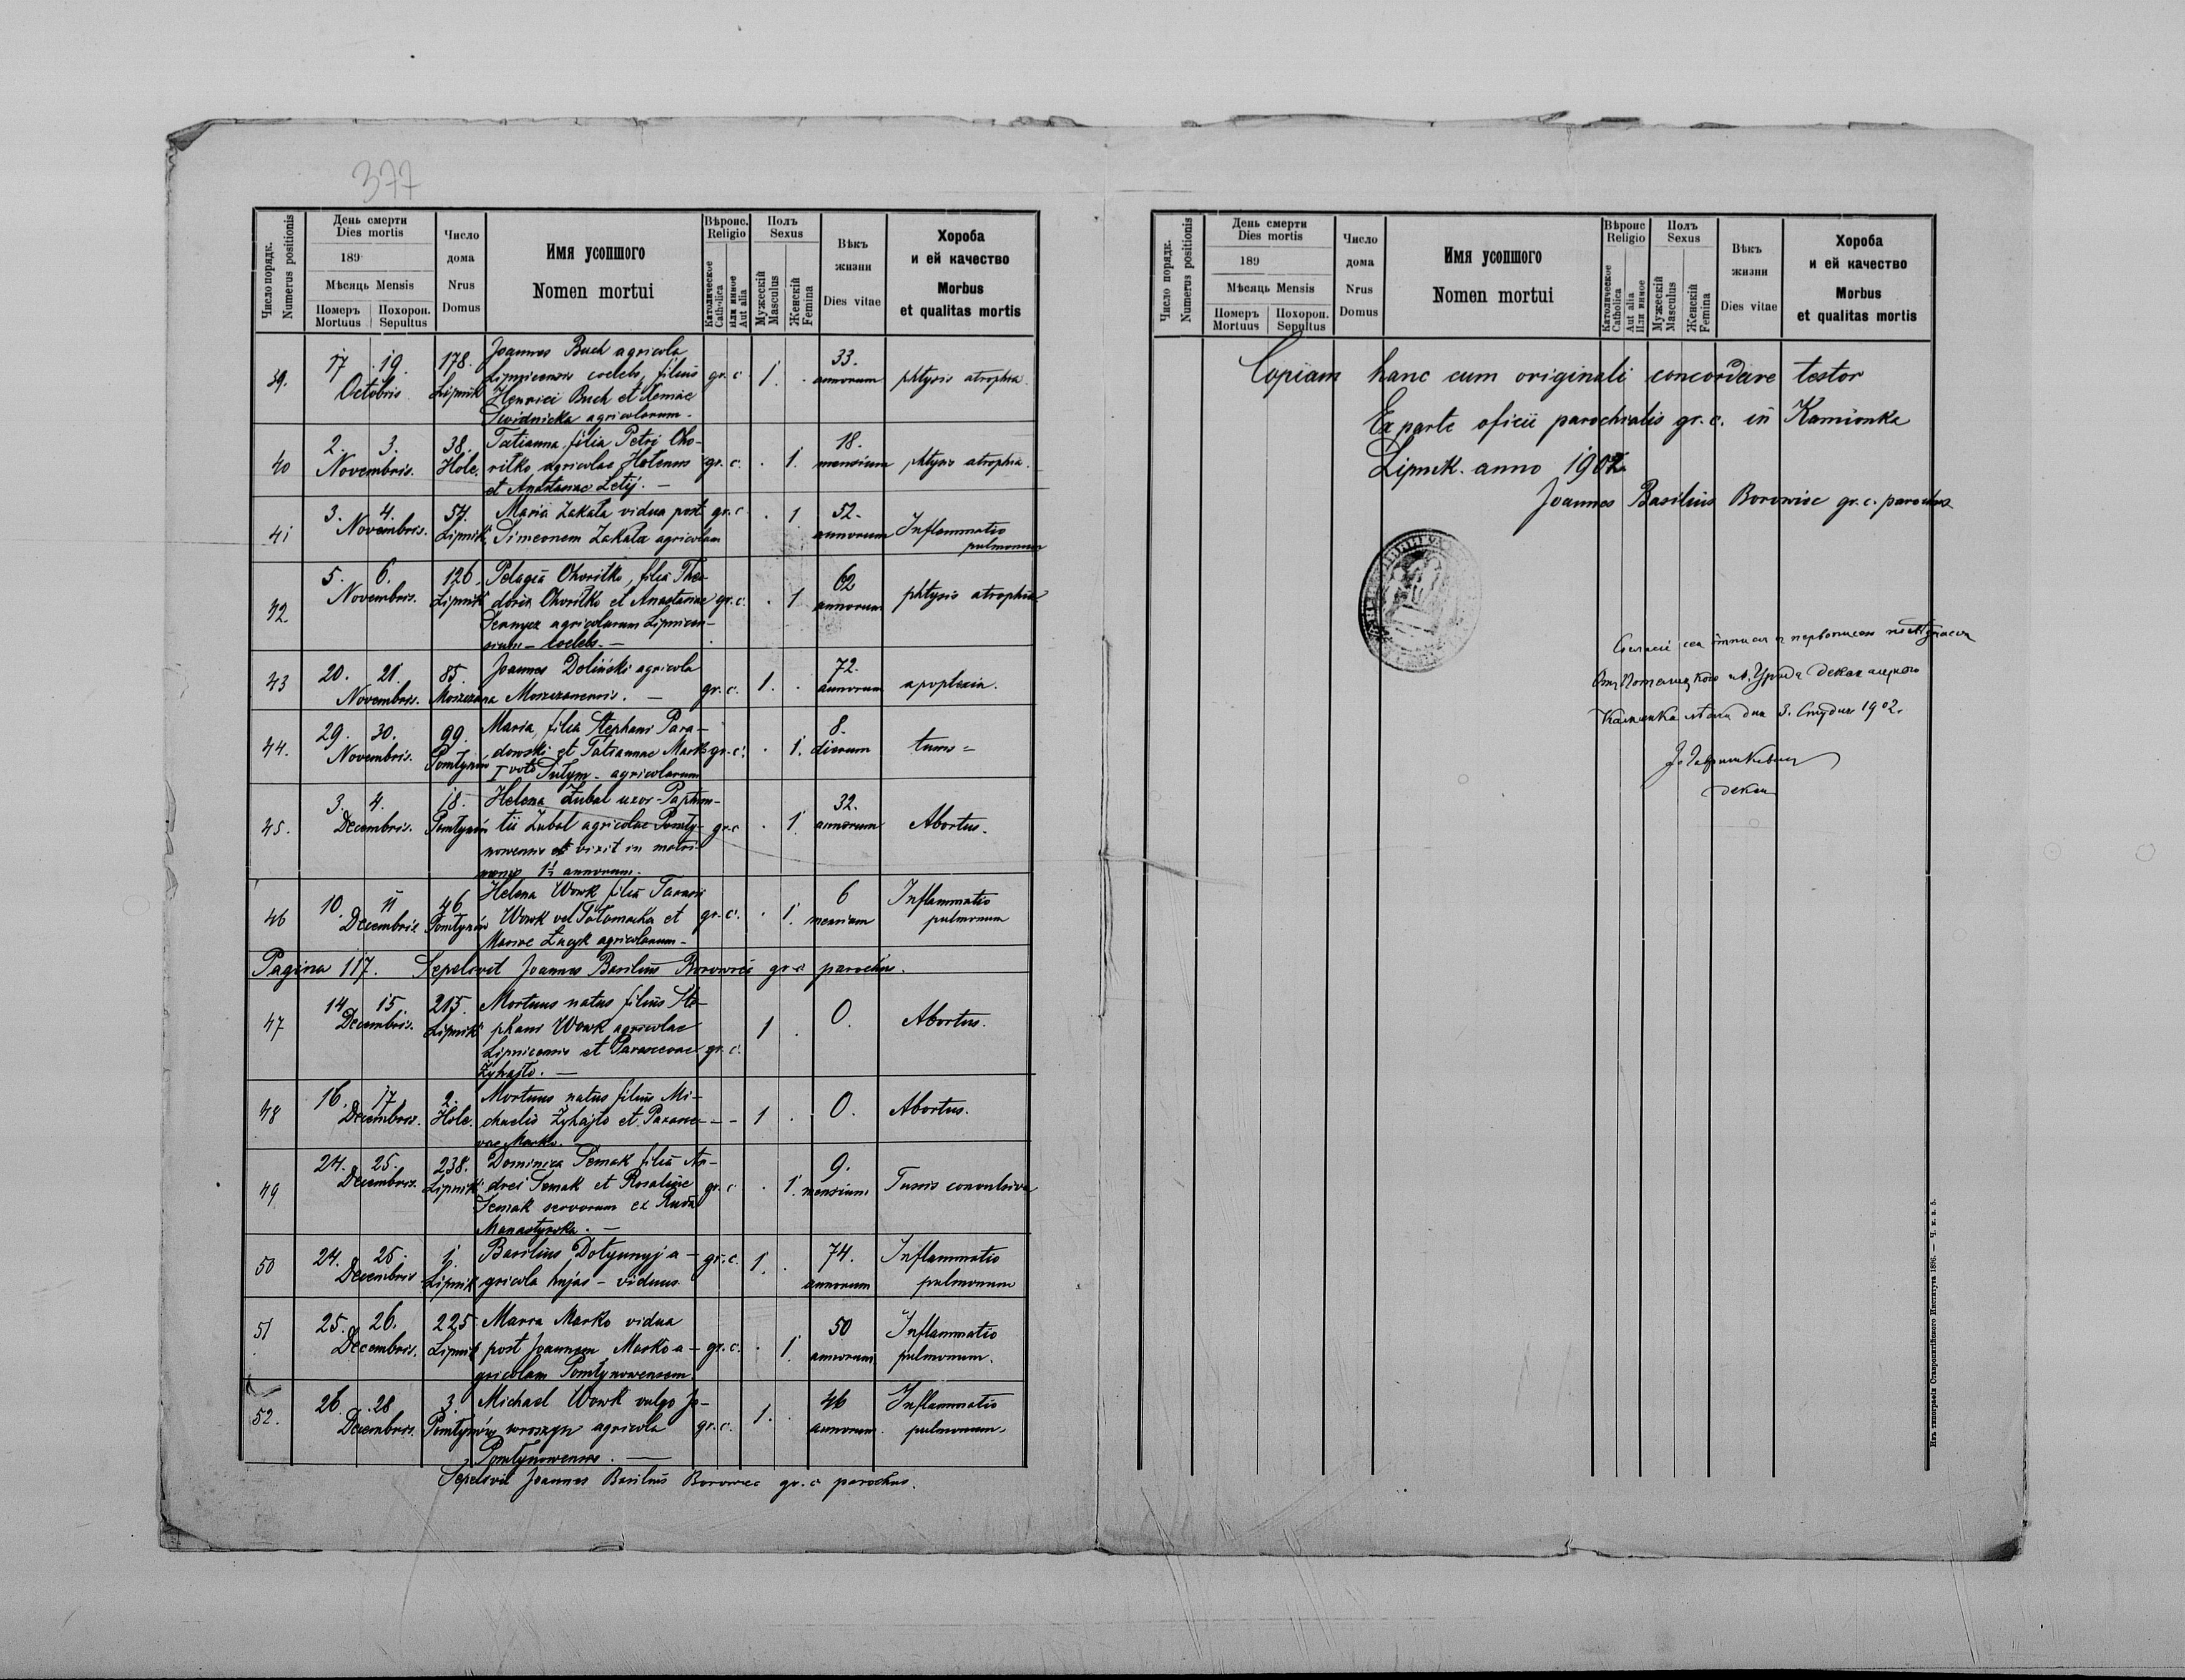 377
Число порядк.
Numerus positionis
День смерти
Dies mortis
189
Мѣсяць Mensis
Померъ Mortuus
Похорон. Sepultus
Число дома
Nrus Domus
Имя усопшого
Nomen mortui
Вѣроис.
Religio
Католическое Catholica
Или инное Aut alia
Полъ
Sexus
Мужескій Masculus
Женскій Femina
Вѣкъ жизни
Dies vitae
Хороба
и ей качество
Morbus
et qualitas mortis
39. 17 19. Octobris 178. Lipnik
Joannes Buch agricola
Lipnicensis coelebs, filius
Henrici Buch et
Swidnicka agricolarum.
gr. c. 1. 33. annorum phtysis atrophia.
40 2. 3. Novembris. 38. Hole.
Tatianna, filia Petri Cho-
ritko agricolae
et Anastasiae Letij. —
gr. c. 1. 18. mensium phtysis atrophia.
41 3. 4. Novembris. 57. Lipnik
Maria Zakala vidua post
Simeonem Zakala agricolam
gr. c. 1 52. annorum Inflammatio
pulmonum
42. 5. 6. Novembris. 126. Lipnik
Pelagia Choritko, filia Theo-
dori Choritko et Anastasiae
agricolarum Lipnicen-
sium — coelebs. —
gr. c. 1 62 annorum phtysis atrophia
43 20. 21. Novembris. 85. Moszczana
Joannes Doliński agricola
Moszczanensis. —
gr. c. 1. 72. annorum apoplexia.
44. 29. 30. Novembris. 99. Pomłynów
Maria, filia Stephani Para-
dowski et Tatiannae Marko
I voto agricolarum
gr. c. 1. 8. dierum tussis =
45. 3. 4. Decembris. 18. Pomłynów
Helena Zubal uxor Paphnu-
tii Zubal agricolae Pomły-
nowensis et vixit in matri-
monio 1½ annorum.
gr. c 1 32. annorum Abortus.
46 10. 11 Decembris 46 Pomłynów
Helena Wowk filia Tarasii
Wowk vel et
Mariae agricolarum —
gr. c. 1. 6 mensium Inflammatio
pulmonum
Pagina 117. Sepelivit Joannes Basilius Borowiec gr. c parochus.
47 14 15 Decembris. 215. Lipnik
Mortuus natus filius Ste-
phani Wowk agricolae
Lipnicensis et Parascevae
Zyhajło. —
gr. c. 1 0. Abortus.
48 16. 17 Decembris. 2. Hole.
Mortuus natus filius Mi-
chaelis Zyhajło et Parasce-
vae Marko.
1 0. Abortus.
49 24. 25. Decembris. 238. Lipnik
Dominica Semak filia An-
drei Semak et Rosaliae
Semak servorum ex Ruda
Manastyrska. —
gr. c 1. 9. mensium Tussis convulsiva
50 24. 25. Decembris 1. Lipnik
Basilius Dotyunyj a-
gricola hujas — viduus.
gr. c. 1. 74. annorum Inflammatio
pulmonum
51 25. 26. Decembris. 225 Lipnik
Maria Marko vidua
post Joannem Marko a-
gricolam Pomłynowensem
gr. c. 1. 50 annorum Inflammatio
pulmonum.
52. 26. 28 Decembris. 3. Pomłynów
Michael Wowk vulgo Ja-
woroszyn agricola
Pomłynowensis. —
gr. c. 1. 46 annorum. Inflammatio
pulmonum.
Sepelivit Joannes Basilius Borowiec gr. c parochus.
Число порядк.
Numerus positionis
День смерти
Dies mortis
189
Мѣсяць Mensis
Померъ Mortuus
Похорон. Sepultus
Число дома
Nrus Domus
Имя усопшого
Nomen mortui
Вѣроис
Religio
Католическое Catholica
Aut alia Или инное
Полъ
Sexus
Мужескій Masculus
Женскій Femina
Вѣкъ жизни
Dies vitae
Хороба
и ей качество
Morbus
et qualitas mortis
Copiam hanc cum originali concordare testor
Ex parte oficii parochialis gr. c. in Kamionka
Lipnik. anno 1902
Joannes Basilius Borowiec gr. c. parochus
дня 3. Студня 1902.
декан
Изъ типографіи Ставропигійского Института 1896. — Ч. к. в. 5.